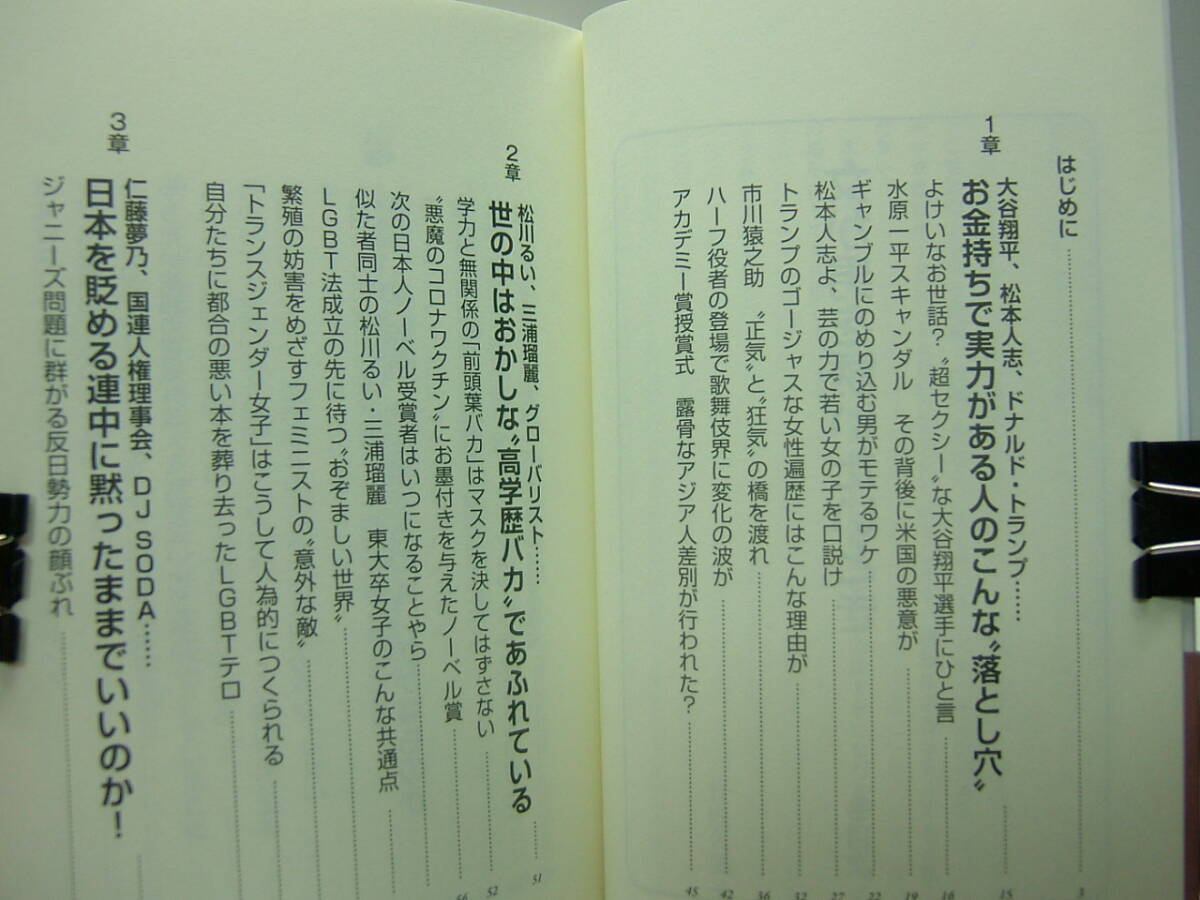 はじめに 3
1章
大谷翔平、松本人志、ドナルド・トランプ……
お金持ちで実力がある人のこんな〝落とし穴〟 15
よけいなお世話？ 〝超セクシー〟な大谷翔平選手にひと言 16
水原一平スキャンダル その背後に米国の悪意が 19
ギャンブルにのめり込む男がモテるワケ 22
松本人志よ、芸の力で若い女の子を口説け 27
トランプのゴージャスな女性遍歴にはこんな理由が 32
市川猿之助 〝正気〟と〝狂気〟の橋を渡れ 36
ハーフ役者の登場で歌舞伎界に変化の波が 42
アカデミー賞授賞式 露骨なアジア人差別が行われた？ 45
2章
松川るい、三浦瑠麗、グローバリスト……
世の中はおかしな〝高学歴バカ〟であふれている 51
学力と無関係の「前頭葉バカ」はマスクを決してはずさない 52
〝悪魔のコロナワクチン〟にお墨付きを与えたノーベル賞 56
次の日本人ノーベル受賞者はいつになることやら
似た者同士の松川るい・三浦瑠麗 東大卒女子のこんな共通点
LGBT法成立の先に待つ〝おぞましい世界〟
繁殖の妨害をめざすフェミニストの〝意外な敵〟
「トランスジェンダー女子」はこうして人為的につくられる
自分たちに都合の悪い本を葬り去ったLGBTテロ
3章
仁藤夢乃、国連人権理事会、DJ SODA……
日本を貶める連中に黙ったままでいいのか！
ジャニーズ問題に群がる反日勢力の顔ぶれ